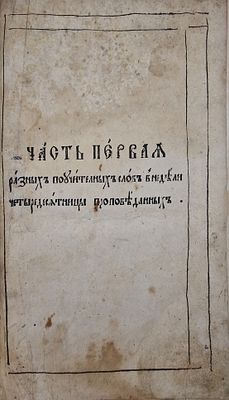 ЧА́СТЬ ПЕ́РВАѦ
ра́зныхъ поучи́телныхъ сло́въ внедѣ́ли
четыредеся́тницы проповѣ́данныхъ .